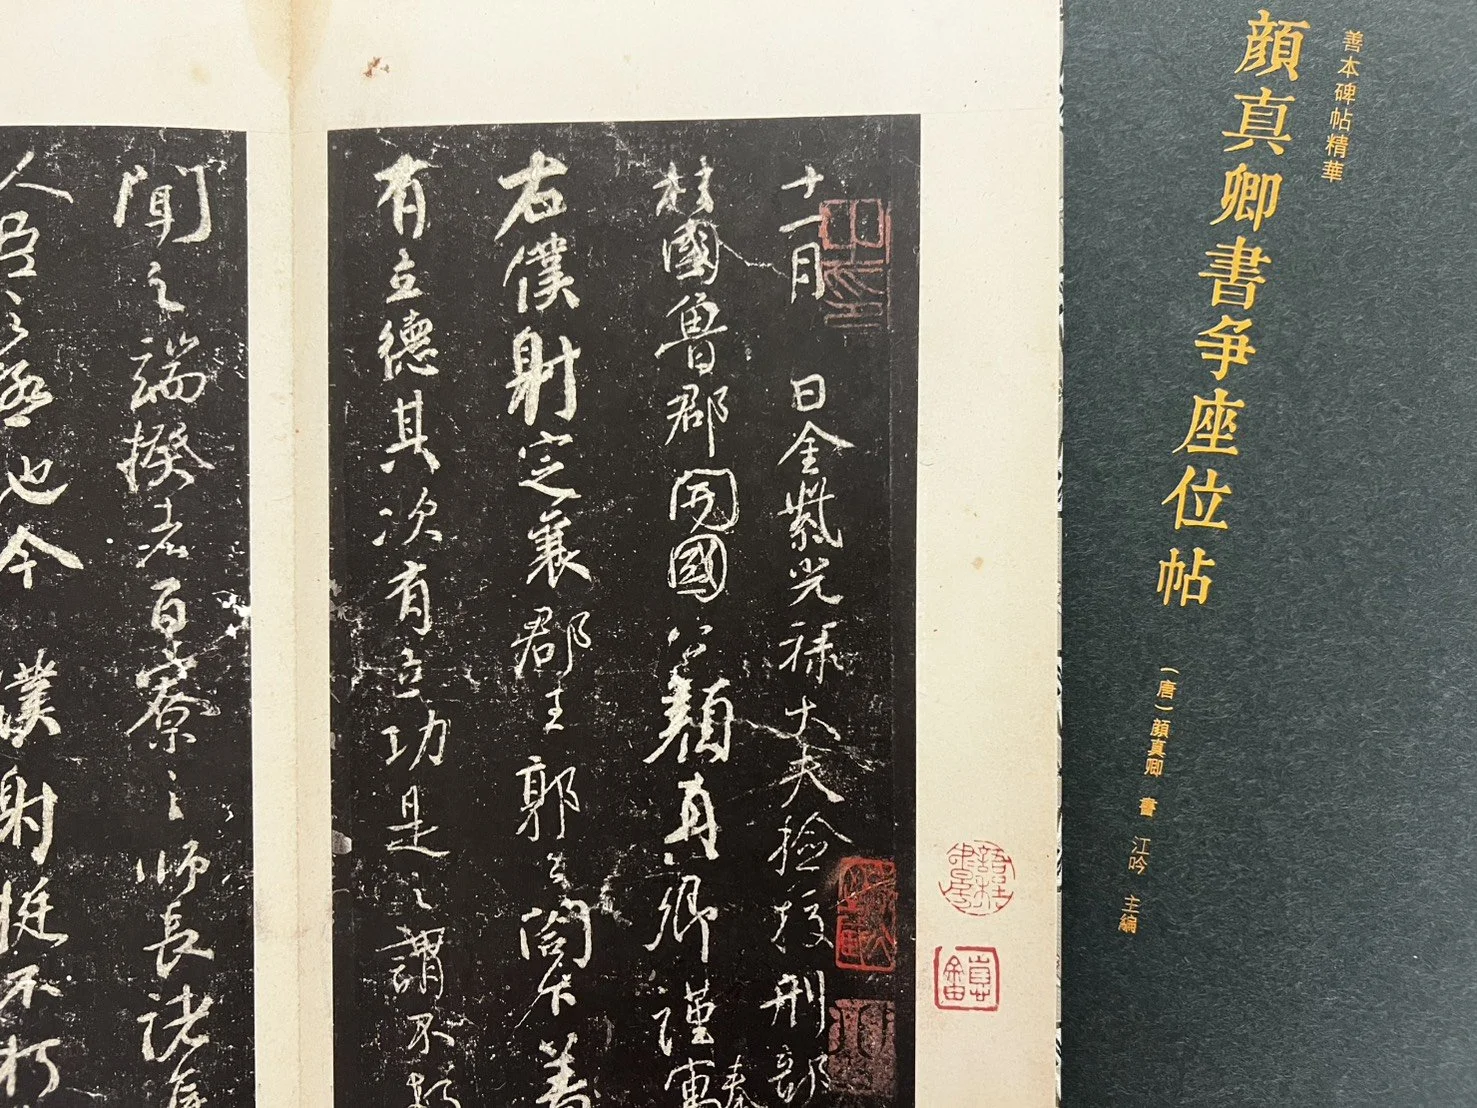 善本碑帖精華
顔真卿書争座位帖
(唐)顔真卿 書 江吟 主編
十一月 日金紫光祿大夫撿挍刑部
柱國魯郡開國公顏真卿謹奉寓
右僕射定襄郡王郭公閤下蓋
有立德其次有立功是之謂不朽
聞之端揆者百寮之師長諸
人臣之極也今僕射挺不朽